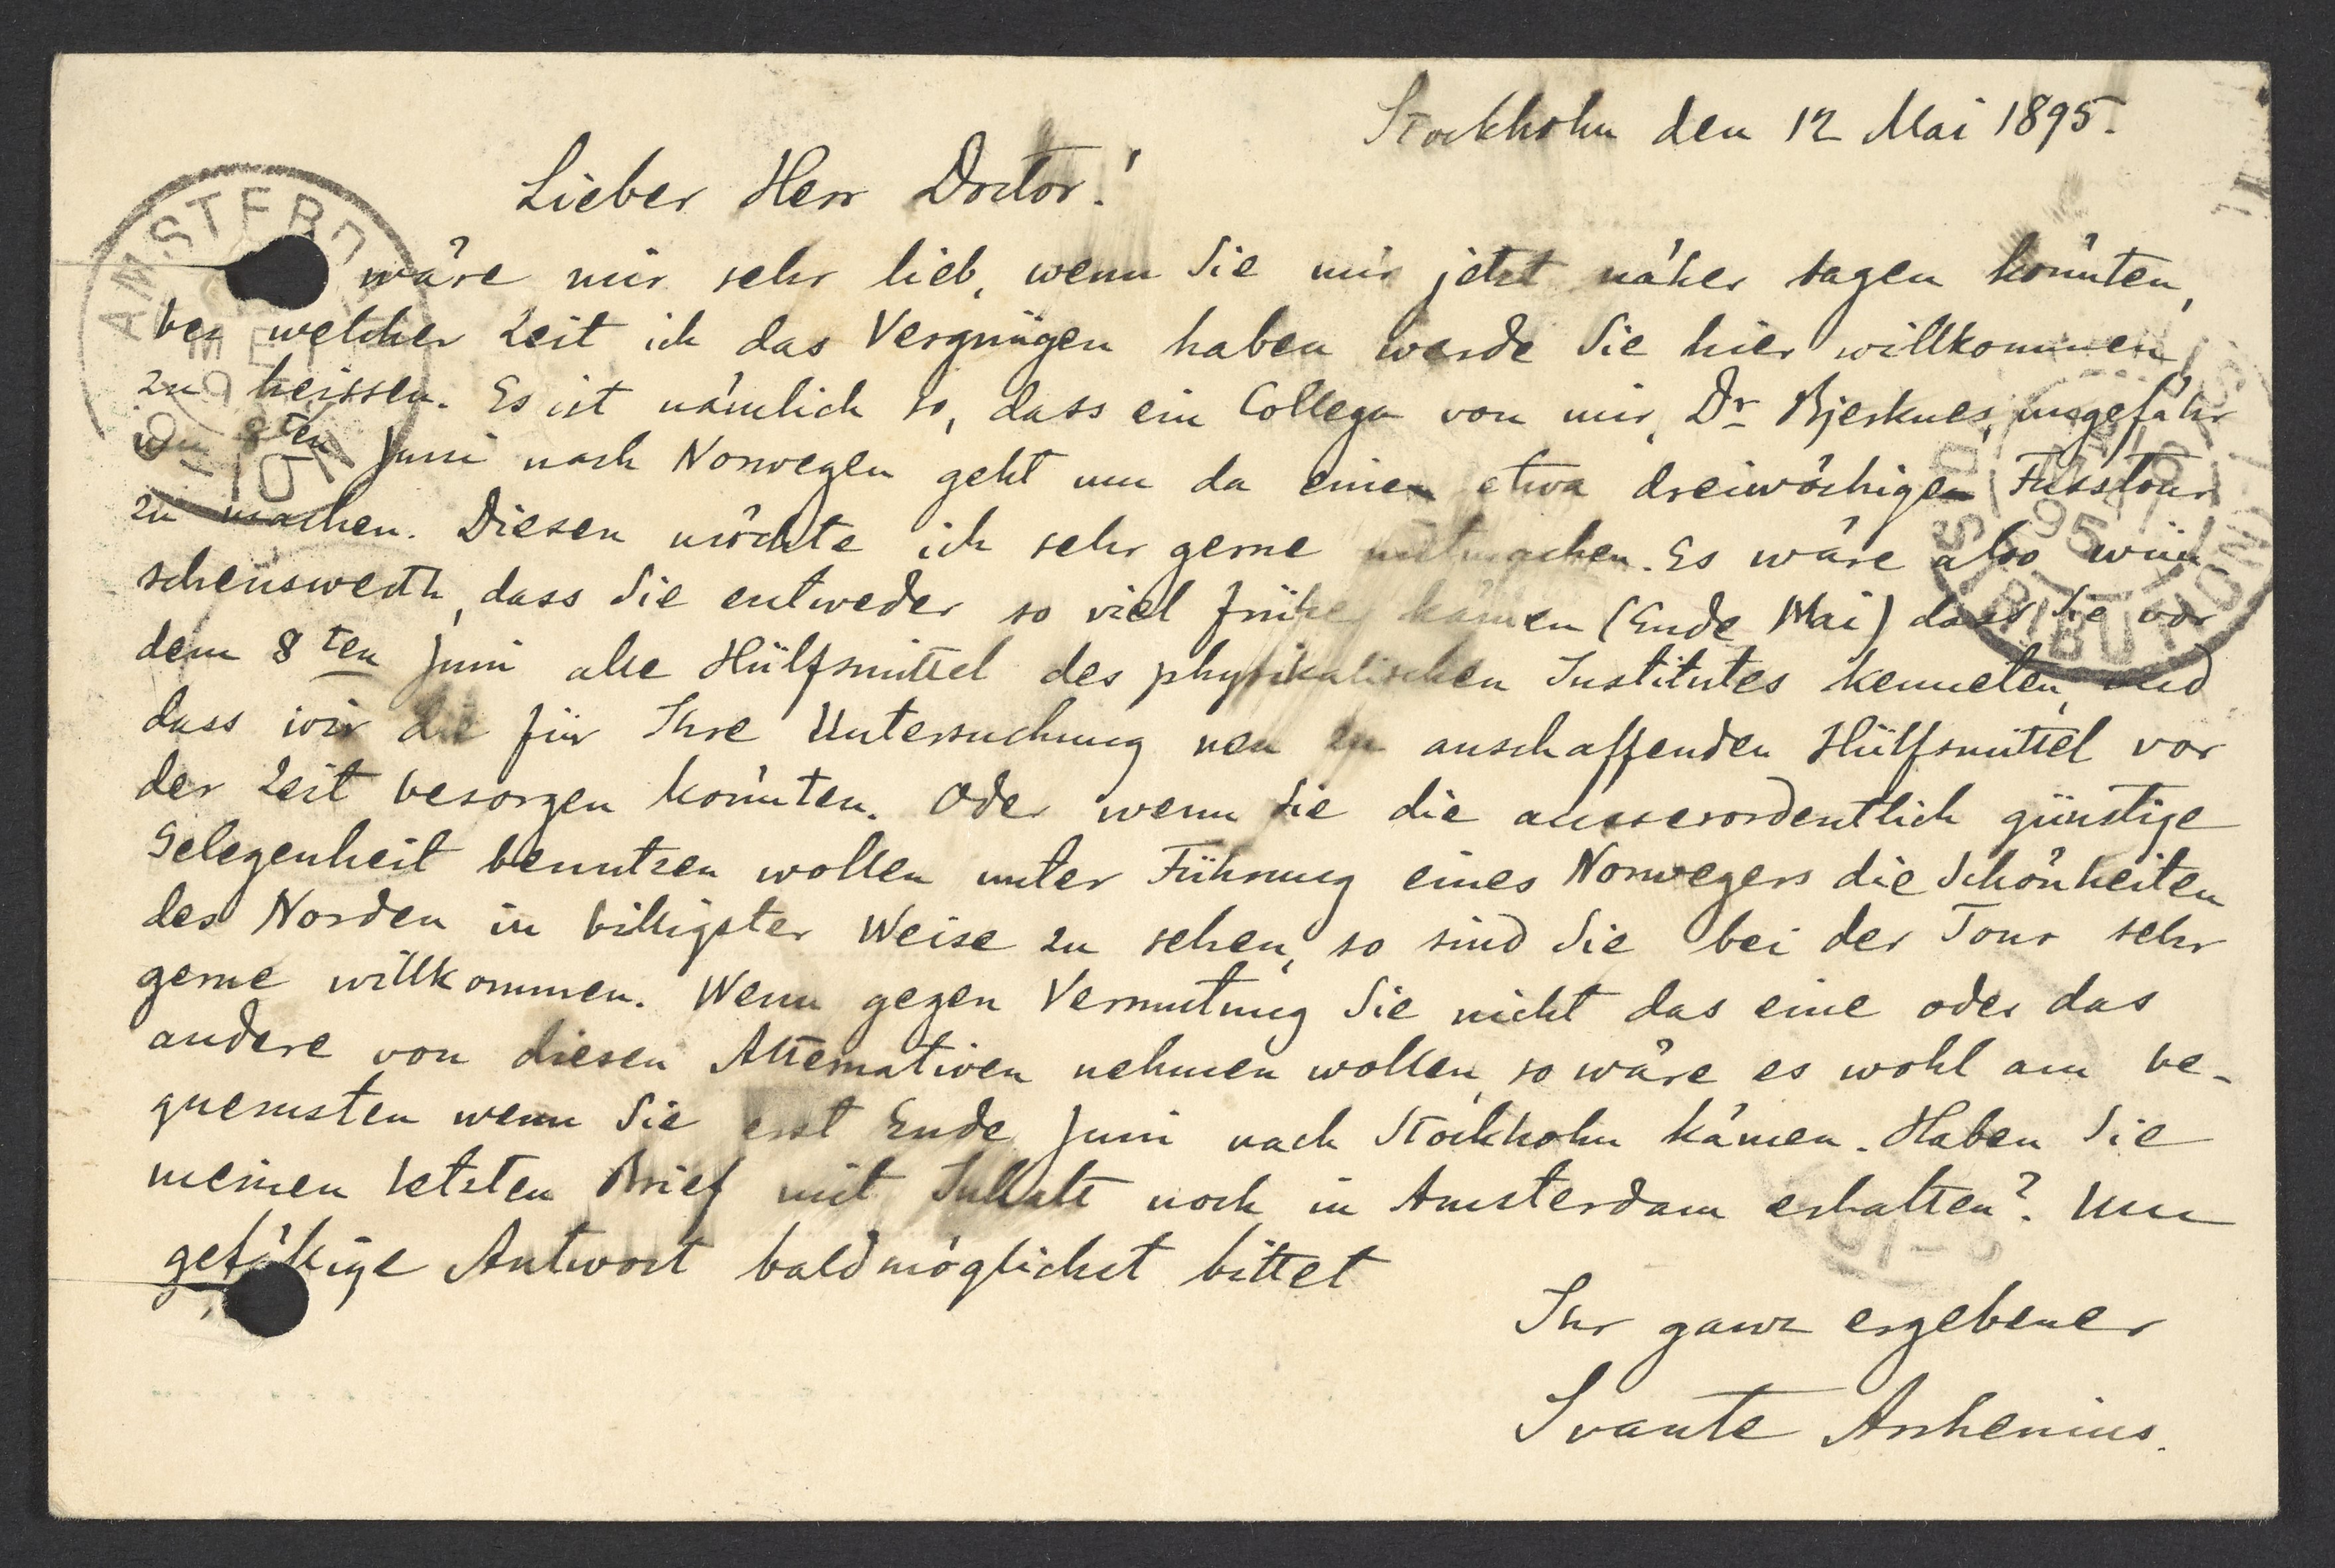 Stockholm den 12 Mai 1895.
Lieber Herr Doctor!
wäre mir sehr lieb, wenn Sie mir jetzt näher sagen könnten,
bei welcher Zeit ich das Vergnügen haben werde Sie hier willkommen
zu heissen. Es ist nämlich so, dass ein Collega von mir, Dr Bjerknes, ungefähr
8ten Juni nach Norwegen geht um da einen etwa dreiwöchigen Fusstour
zu machen. Diesen möchte ich sehr gerne mitmachen. Es wäre also wün
schenswerth, dass Sie entweder so viel früher kämen (Ende Mai) dass Sie vor
dem 8ten Juni alle Hülfsmittel des physikalischen Institutes kenneten, und
dass wir die für Ihre Untersuchung neu zu anschaffenden Hülfsmittel vor
der Zeit besorgen könnten. Oder wenn Sie die ausserordentlich günstige
Gelegenheit benutzen wollen unter Führung eines Norwegers die Schönheiten
des Norden in billigster Weise zu sehen, so sind Sie bei der Tour sehr
gerne willkommen. Wenn gegen Vermutung Sie nicht das eine oder das
andere von diesen Alternativen nehmen wollen, so wäre es wohl am be-
quemsten wenn Sie erst Ende Juni nach Stockholm kämen. Haben Sie
meinen letzten Brief mit Inhalt noch in Amsterdam erhalten? Um
gefällige Antwort baldmöglichst bittet
Ihr ganz ergebener
Svante Arrhenius.
AMSTERD
95